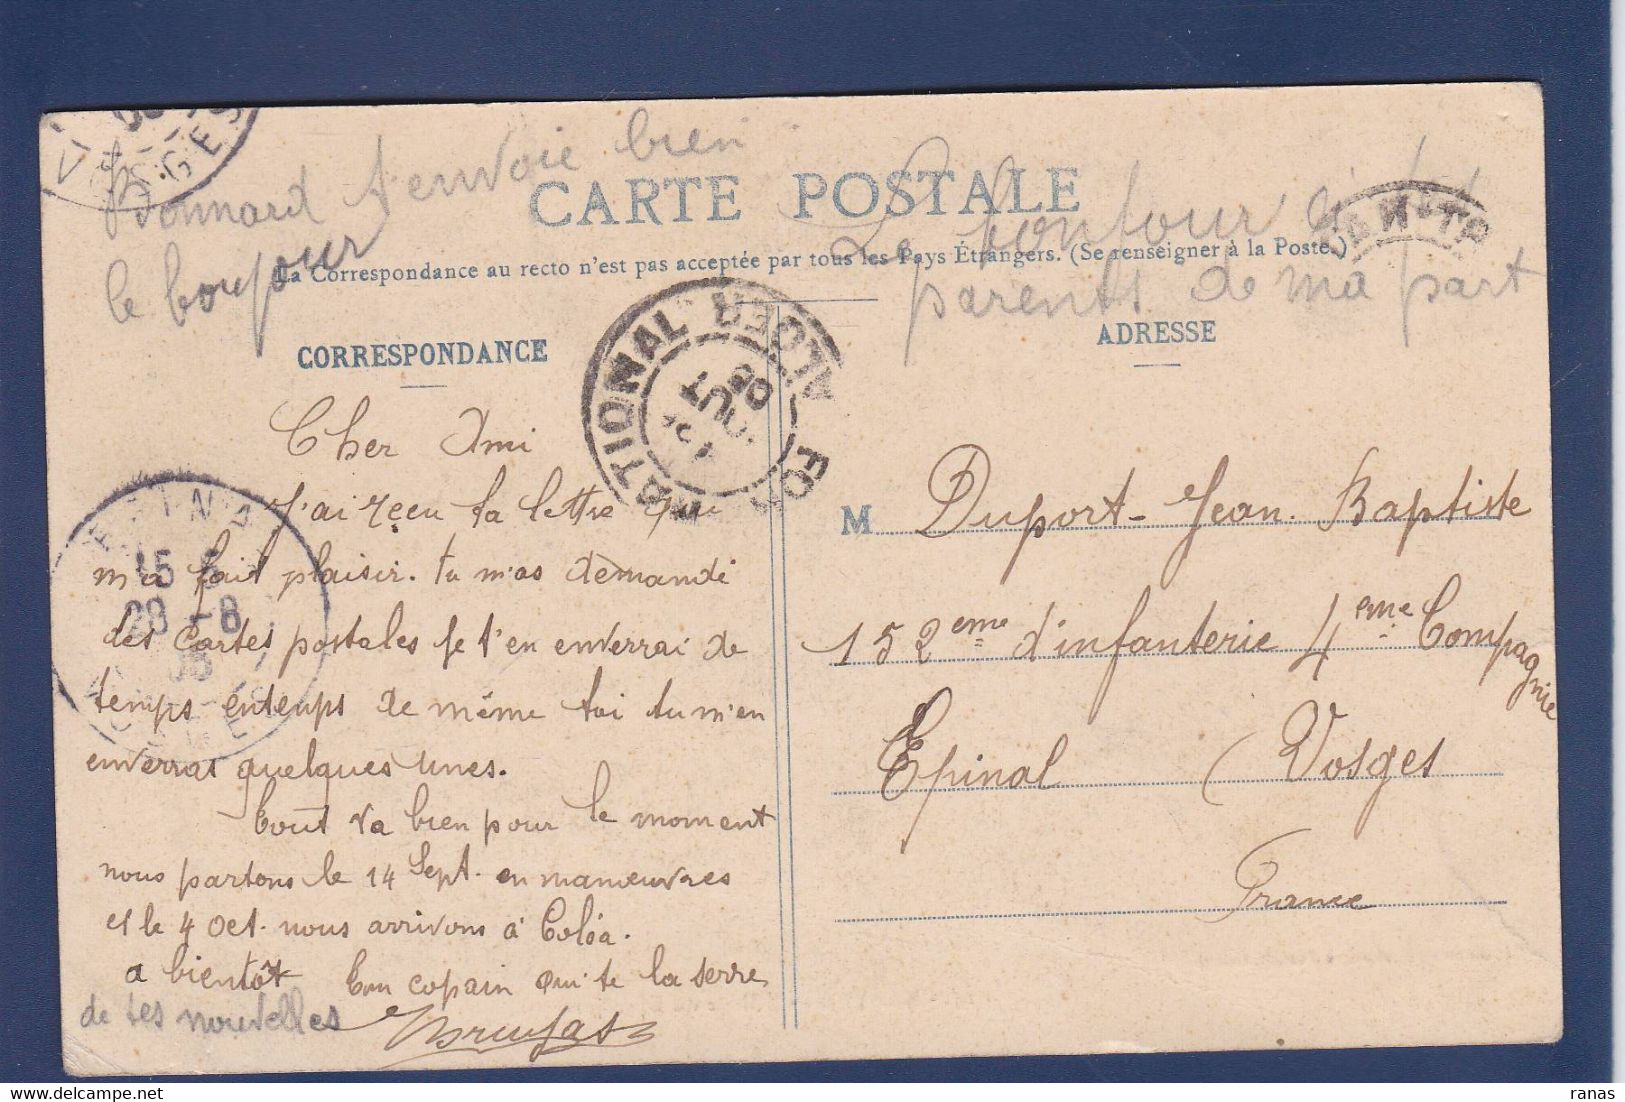 Bonnard t'envoie bien
le bonjour
Le bonjour à
parents de ma part
CARTE POSTALE
La Correspondance au recto n'est pas acceptée par tous les Pays Étrangers. (Se renseigner à la Poste.)
CORRESPONDANCE
ADRESSE
NATIONAL
ALGER
AOUT
05
EPINAL
15
28 -8
05
VOSGES
Cher Ami
J'ai reçu ta lettre qui
m'a fait plaisir. tu m'as demandé
des cartes postales je t'en enverrai de
temps entemps de même toi tu m'en
enverras quelques unes.
Tout va bien pour le moment
nous partons le 14 Sept. en manœuvres
et le 4 Oct. nous arrivons à Coléa.
a bientôt Ton copain qui te la serre
de tes nouvelles
M Duport Jean Baptiste
152eme d'infanterie 4eme Compagnie
Epinal (Vosges
France
ranas